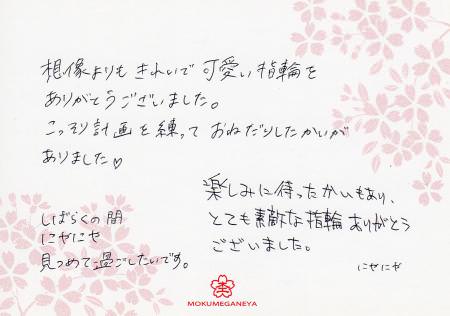 想像よりも きれいで 可愛い 指輪を
ありがとうございました。
こっそり計画を練って おねだりしたかいが
ありました♡
しばらくの間
にやにや
見つめて過ごしたいです。
楽しみに待ったかいもあり、
とても素敵な指輪 ありがとう
ございました。
にやにや
MOKUMEGANEYA